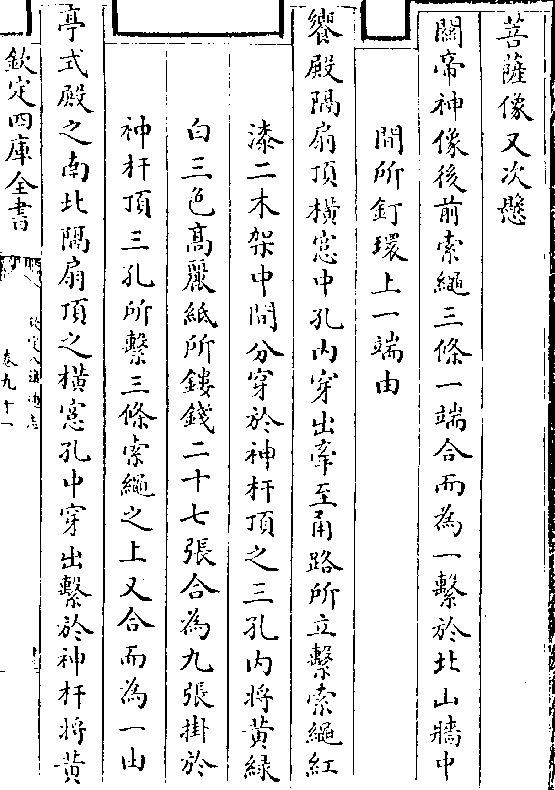 菩薩像又次懸
關帝神像後前索繩三條一端合而為一繫於北山牆中
間所釘環上一端由
饗殿隔扇頂橫窓中孔內穿出牽至甬路所立繫索繩紅
漆二木架中間分穿於神杆頂之三孔內將黃綠
白三色高麗紙所鏤錢二十七張合為九張掛於
神杆頂三孔所繫三條索繩之上又合而為一由
亭式殿之南北隔扇頂之橫窓孔中穿出繫於神杆將黃
欽定四庫全書
卷九十一